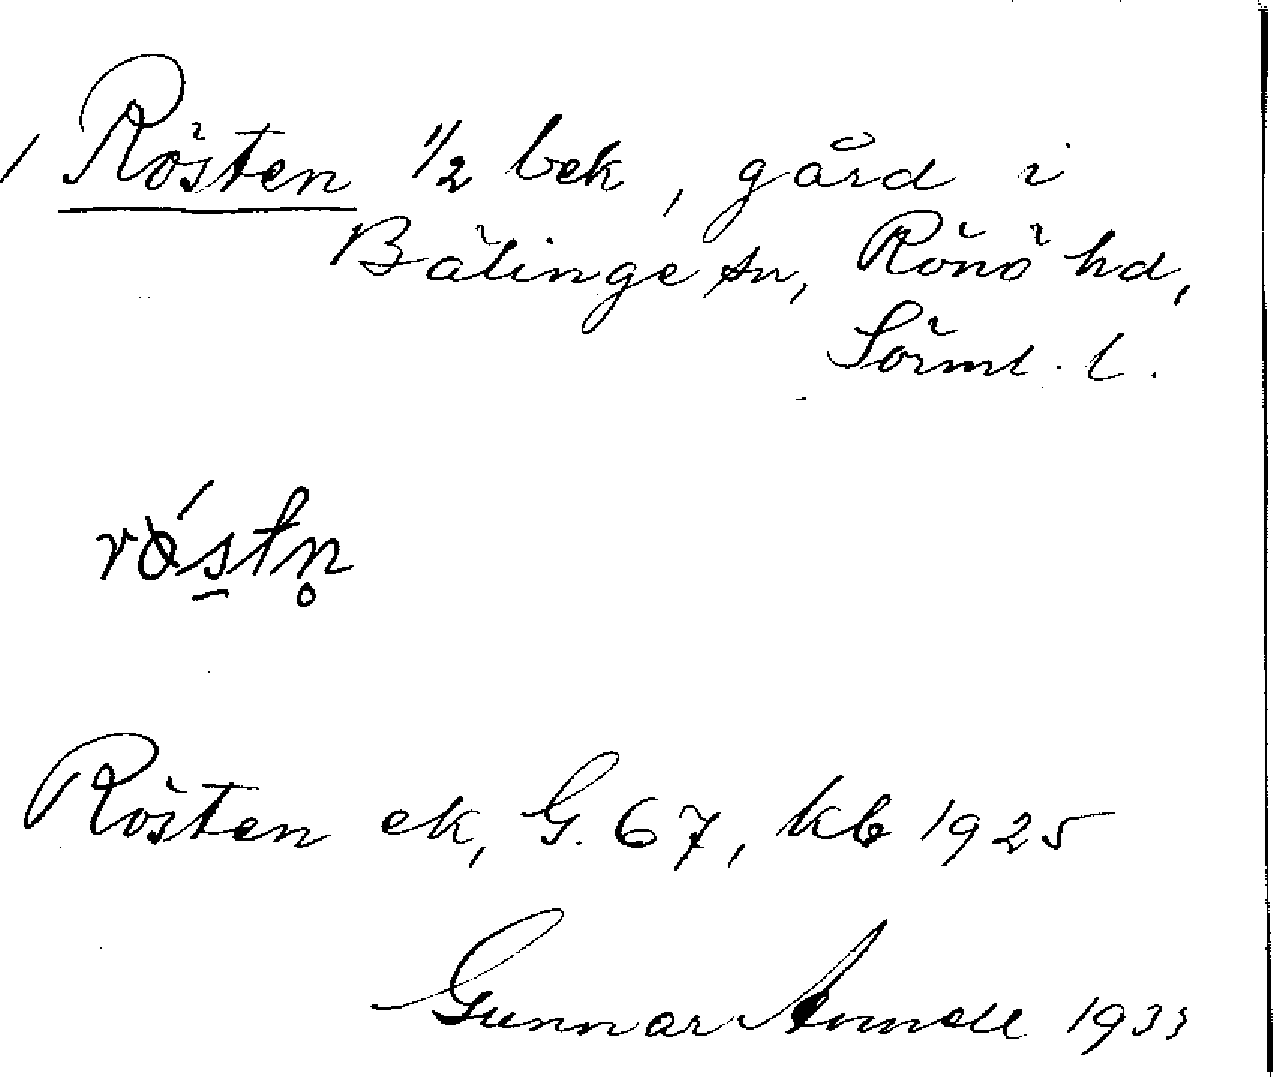 / Rösten 1/2 bek, gård i
Bälinge sn, Rönö hd,
Sörml. l.
Rösten ek, G. 67, kb 1925
Gunnar 1933